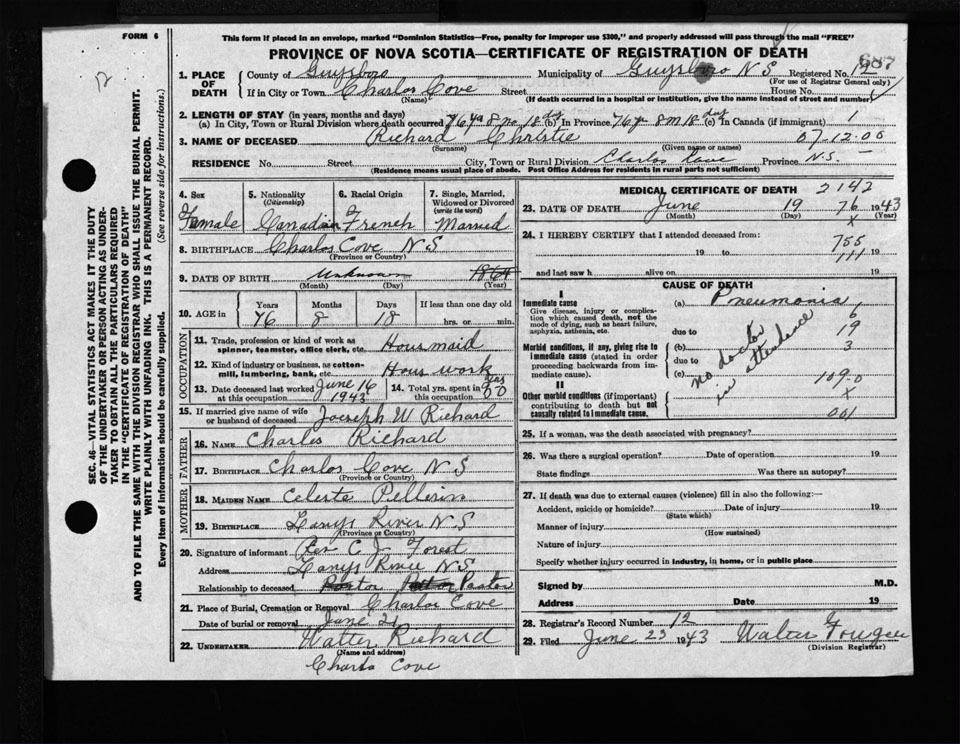 FORM 6
This form if placed in an envelope, marked "Dominion Statistics—Free, penalty for improper use $300," and properly addressed will pass through the mail "FREE"
PROVINCE OF NOVA SCOTIA—CERTIFICATE OF REGISTRATION OF DEATH
687
12
SEC. 46—VITAL STATISTICS ACT MAKES IT THE DUTY
OF THE UNDERTAKER OR PERSON ACTING AS UNDER-
TAKER TO OBTAIN ALL THE PARTICULARS REQUIRED
IN THE "CERTIFICATE OF REGISTRATION OF DEATH"
AND TO FILE THE SAME WITH THE DIVISION REGISTRAR WHO SHALL ISSUE THE BURIAL PERMIT.
WRITE PLAINLY WITH UNFADING INK. THIS IS A PERMANENT RECORD.
Every item of information should be carefully supplied. (See reverse side for instructions.)
1. PLACE OF DEATH
County of Guysboro Municipality of Guysboro N S Registered No. 12
(For use of Registrar General only)
If in City or Town Charlos Cove Street House No.
(Name) (If death occurred in a hospital or institution, give the name instead of street and number)
2. LENGTH OF STAY (in years, months and days)
(a) In City, Town or Rural Division where death occurred 76 yrs 8 mo 18 dy (b) In Province 76 yr 8 m 18 dy (c) In Canada (if immigrant) 1
3. NAME OF DECEASED Richard Christie 07-12-00
(Surname) (Given name or names)
RESIDENCE No. Street City, Town or Rural Division Charlos Cove Province N.S.
(Residence means usual place of abode. Post Office Address for residents in rural parts not sufficient)
4. Sex Female
5. Nationality (Citizenship) Canadian
6. Racial Origin French
7. Single, Married, Widowed or Divorced (write the word) Married
8. BIRTHPLACE Charlos Cove N S
(Province or Country)
9. DATE OF BIRTH Unknown 1864
(Month) (Day) (Year)
10. AGE in Years Months Days If less than one day old
76 8 18 hrs. or min.
OCCUPATION
11. Trade, profession or kind of work as spinner, teamster, office clerk, etc. Housmaid
12. Kind of industry or business, as cotton-mill, lumbering, bank, etc. Hous work
13. Date deceased last worked at this occupation June 16 1943
14. Total yrs. spent in this occupation
15. If married give name of wife or husband of deceased Joeseph W Richard
FATHER
16. NAME Charles Richard
17. BIRTHPLACE Charlos Cove N S
(Province or Country)
MOTHER
18. MAIDEN NAME Celeste Pellerin
19. BIRTHPLACE Larrys River N S
(Province or Country)
20. Signature of informant Rev C J Forest
Address Larrys River N S
Relationship to deceased Pastor
21. Place of Burial, Cremation or Removal Charlos Cove
Date of burial or removal June 21
22. UNDERTAKER Walter Richard
(Name and address)
Charlos Cove
MEDICAL CERTIFICATE OF DEATH 2142
23. DATE OF DEATH June 19 76 1943
(Month) (Day) x (Year)
24. I HEREBY CERTIFY that I attended deceased from:
755
19 to 111 19
and last saw h alive on 19
CAUSE OF DEATH
I
Immediate cause (a) Pneumonia
Give disease, injury or complication which caused death, not the mode of dying, such as heart failure, asphyxia, asthenia, etc.
due to
6
19
Morbid conditions, if any, giving rise to immediate cause (stated in order proceeding backwards from immediate cause).
(b) 3
due to
(c) 109-0
no doctor
in attendance
II
Other morbid conditions (if important) contributing to death but not causally related to immediate cause.
x
001
25. If a woman, was the death associated with pregnancy?
26. Was there a surgical operation? Date of operation 19
State findings Was there an autopsy?
27. If death was due to external causes (violence) fill in also the following:—
Accident, suicide or homicide? Date of injury 19
(State which)
Manner of injury
(How sustained)
Nature of injury
Specify whether injury occurred in industry, in home, or in public place
Signed by M.D.
Address Date 19
28. Registrar's Record Number 12
29. Filed June 23 1943 Walter Fougere
(Division Registrar)